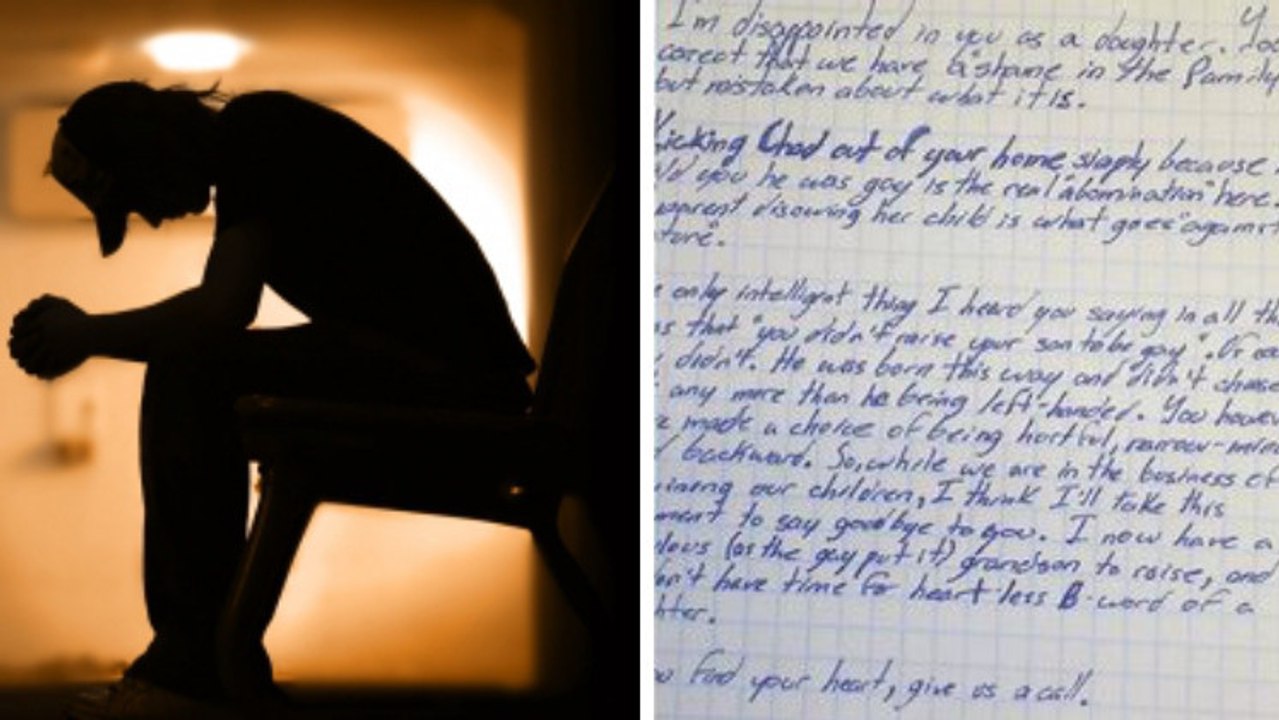 I'm disappointed in you as a daughter. You
corect that we have a "shame in the family
but mistaken about what it is.
Kicking Chad out of your home simply because
you he was gay is the real "abomination" here.
parent disowing her child is what goes "against
ture".
only intelligent thing I heard you saying in all th
s that "you didn't raise your son to be gay". Of
didn't. He was born this way and didn't choose
any more than he being left-handed. You howev
made a choice of being hurtful, narrow-mind
backward. So, while we are in the business of
ning our children, I think I'll take this
ment to say goodbye to you. I now have a
lous (as the gay put it) grandson to raise, and
on't have time for heart-less B-word of a
hter.
find your heart, give us a call.